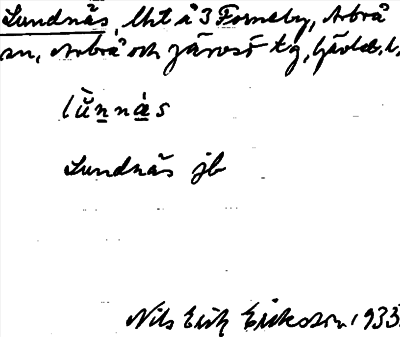 Lundnäs, lht å 3 Forneby, Arbrå
sn, Arbrå och Järvsö tg, Gävleb. l.
lŭnnás
Lundnäs jb
Nils Erik Eriksson 1933